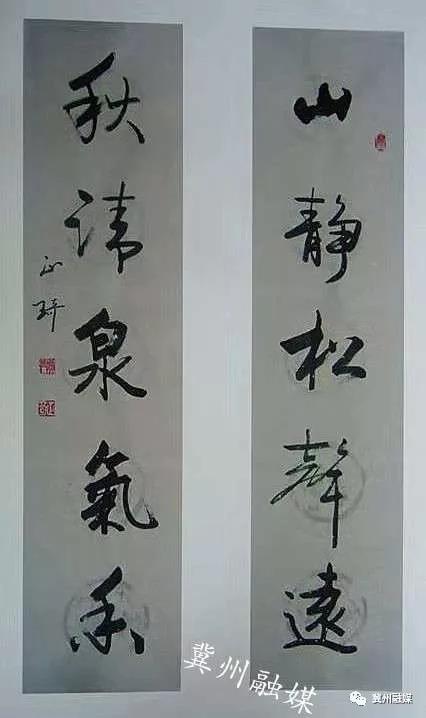 山静松聲遠
秋清泉氣香
冀州融媒
冀州融媒